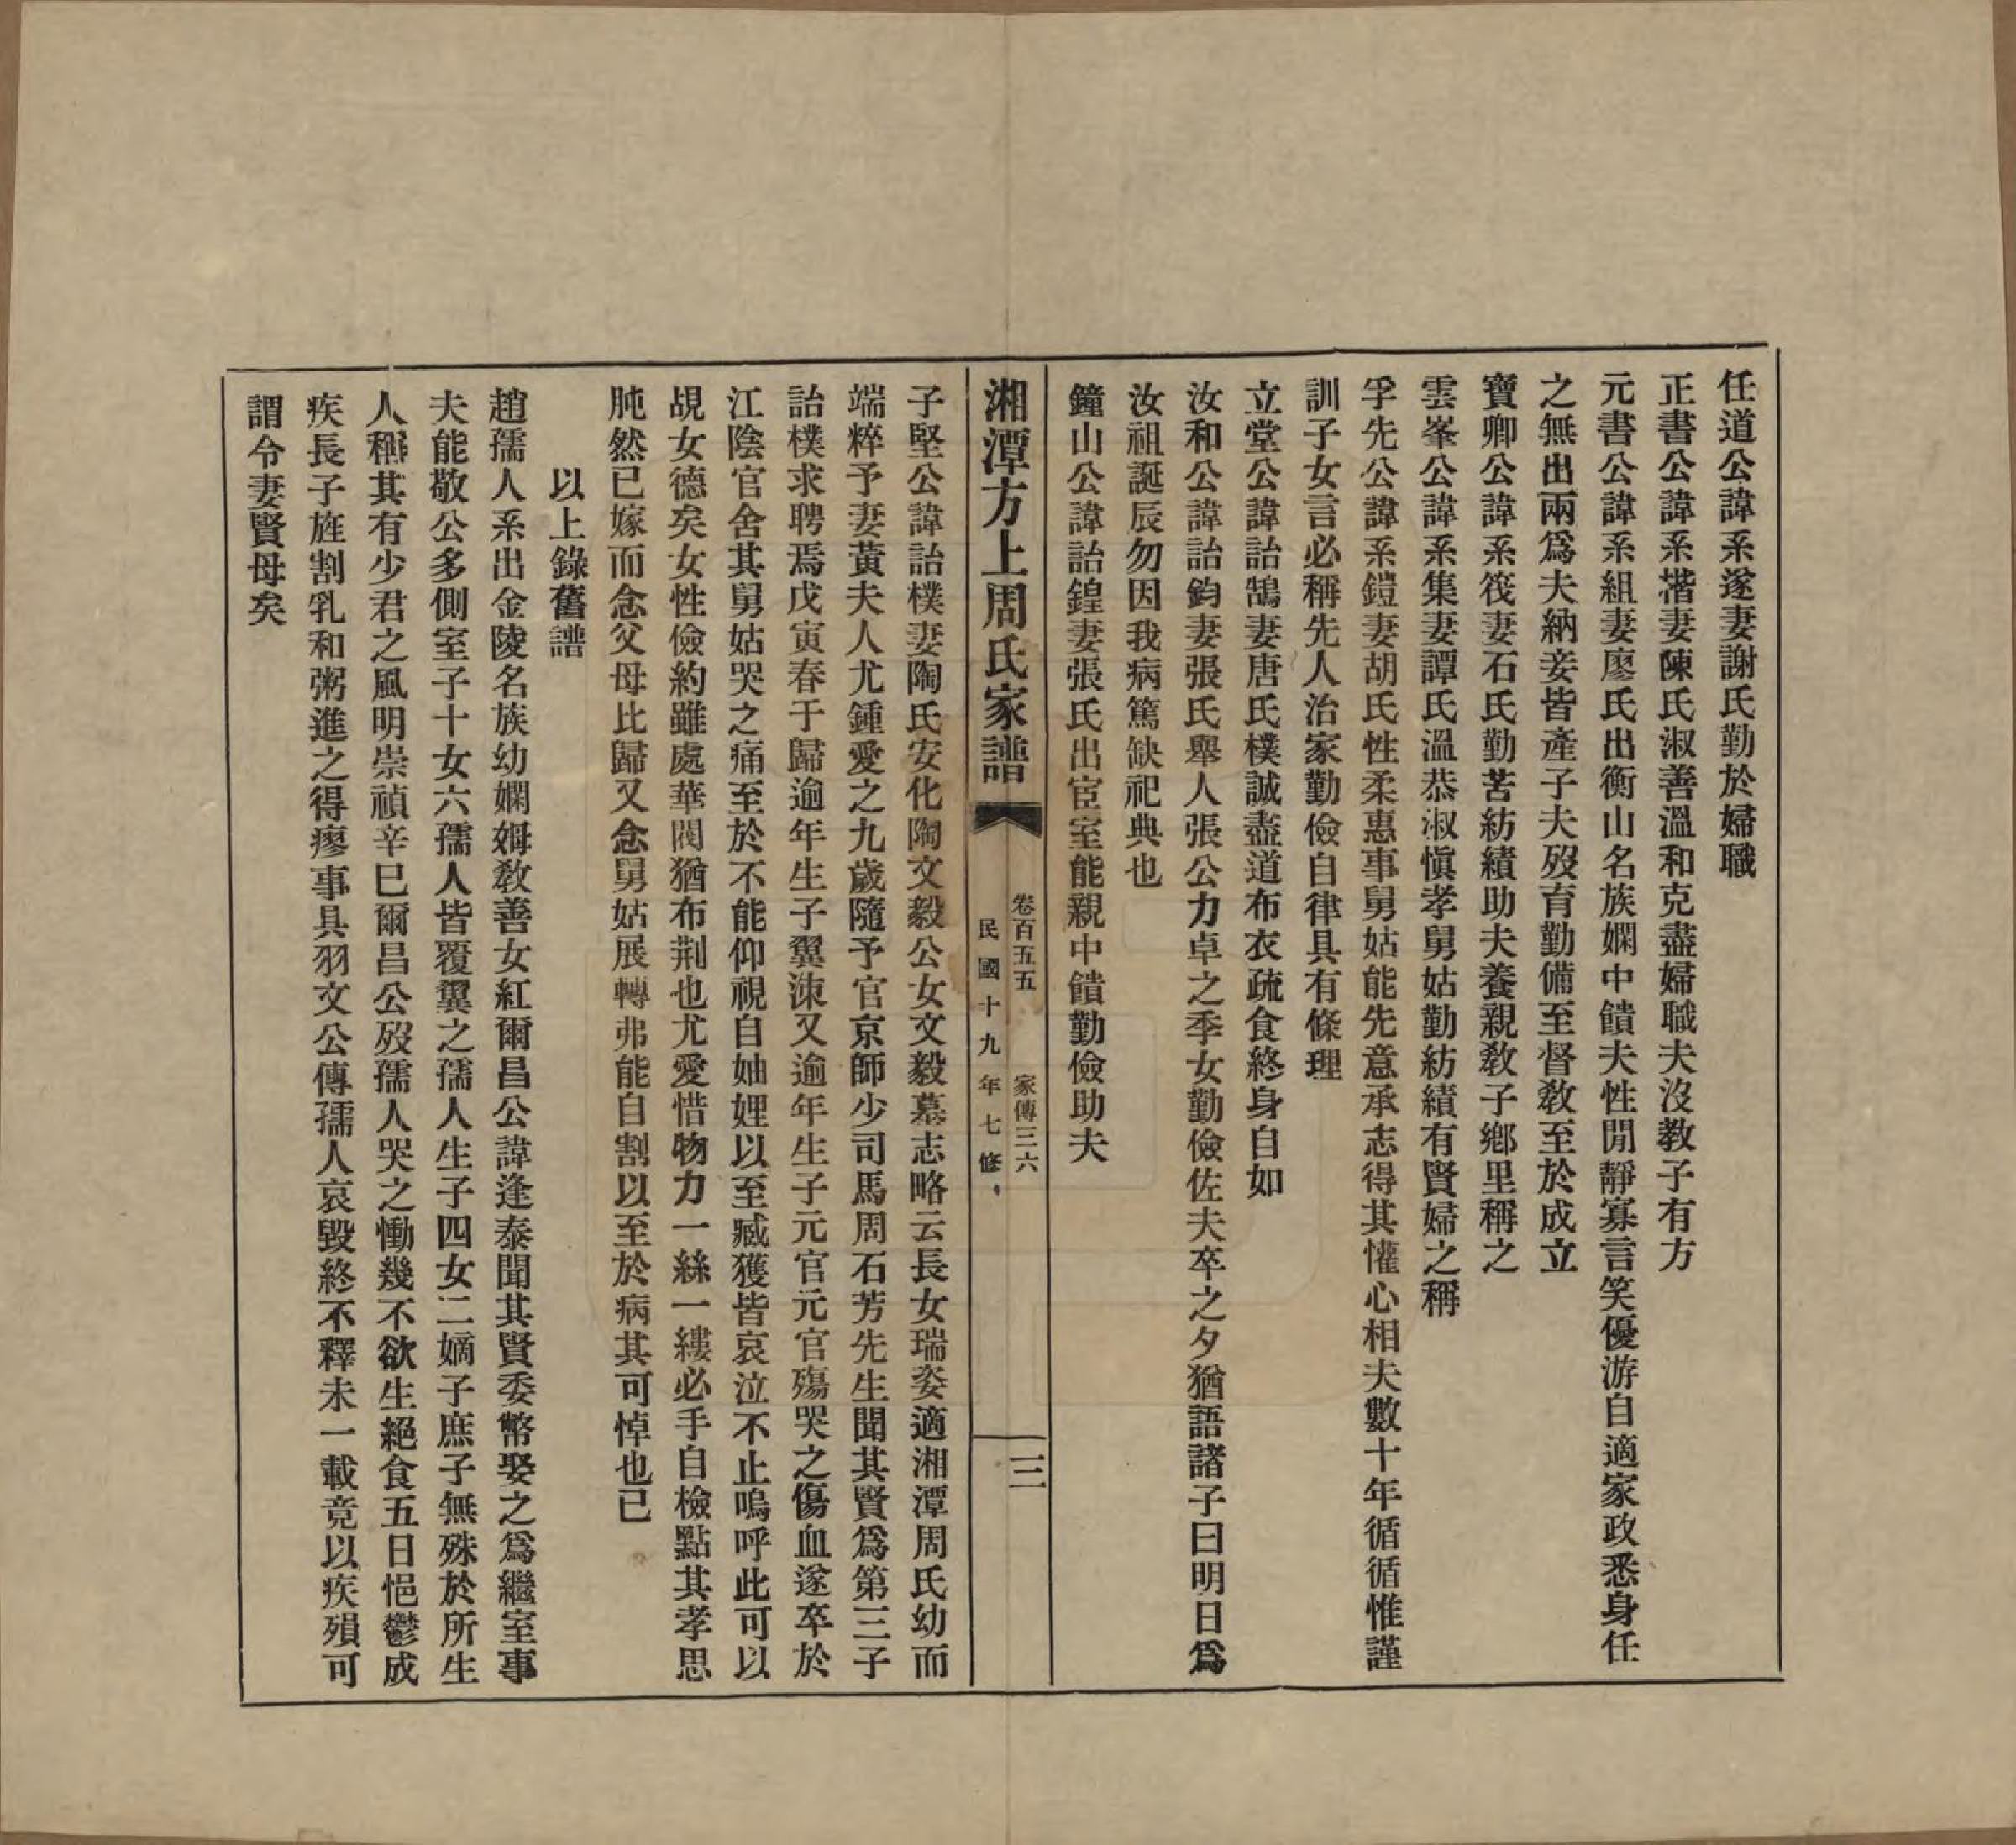 任道公諱系遂妻謝氏勤於婦職
正書公諱系楷妻陳氏淑善溫和克盡婦職夫沒教子有方
元書公諱系組妻廖氏出衡山名族嫻中饋夫性閒靜寡言笑優游自適家政悉身任
之無出兩爲夫納妾皆產子夫歿育勤備至督教至於成立
寶卿公諱系筏妻石氏勤苦紡績助夫養親教子鄉里稱之
雲峯公諱系集妻譚氏溫恭淑愼孝舅姑勤紡績有賢婦之稱
孚先公諱系鎧妻胡氏性柔惠事舅姑能先意承志得其懽心相夫數十年循循惟謹
訓子女言必稱先人治家勤儉自律具有條理
立堂公諱詒鵠妻唐氏樸誠盡道布衣疏食終身自如
汝和公諱詒鈞妻張氏舉人張公力卓之季女勤儉佐夫卒之夕猶語諸子曰明日爲
汝祖誕辰勿因我病篤缺祀典也
鐘山公諱詒鍠妻張氏出宦室能親中饋勤儉助夫
湘潭方上周氏家譜
卷百五五 家傳三六
民國十九年七修
三
子堅公諱詒樸妻陶氏安化陶文毅公女文毅墓志略云長女瑞姿適湘潭周氏幼而
端粹予妻黃夫人尤鍾愛之九歲隨予官京師少司馬周石芳先生聞其賢爲第三子
詒樸求聘焉戊寅春于歸逾年生子翼洓又逾年生子元官元官殤哭之傷血遂卒於
江陰官舍其舅姑哭之痛至於不能仰視自妯娌以至臧獲皆哀泣不止嗚呼此可以
覘女德矣女性儉約雖處華閥猶布荆也尤愛惜物力一絲一縷必手自檢點其孝思
肫然已嫁而念父母比歸又念舅姑展轉弗能自割以至於病其可悼也已
以上錄舊譜
趙孺人系出金陵名族幼嫻姆教善女紅爾昌公諱逢泰聞其賢委幣娶之爲繼室事
夫能敬公多側室子十女六孺人皆覆翼之孺人生子四女二嫡子庶子無殊於所生
人稱其有少君之風明崇禎辛巳爾昌公歿孺人哭之慟幾不欲生絕食五日悒鬱成
疾長子旌割乳和粥進之得瘳事具羽文公傳孺人哀毀終不釋未一載竟以疾殞可
謂令妻賢母矣